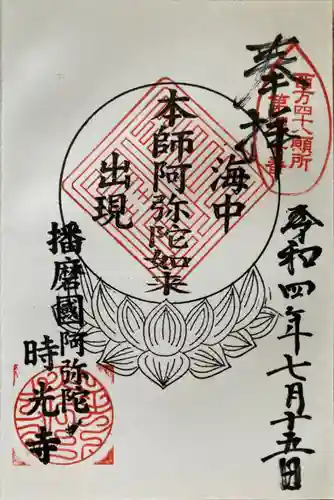 奉拝
西方四十八願所
海中
本師阿弥陀如来
出現
令和四年七月十五日
播磨國阿弥陀
時光寺